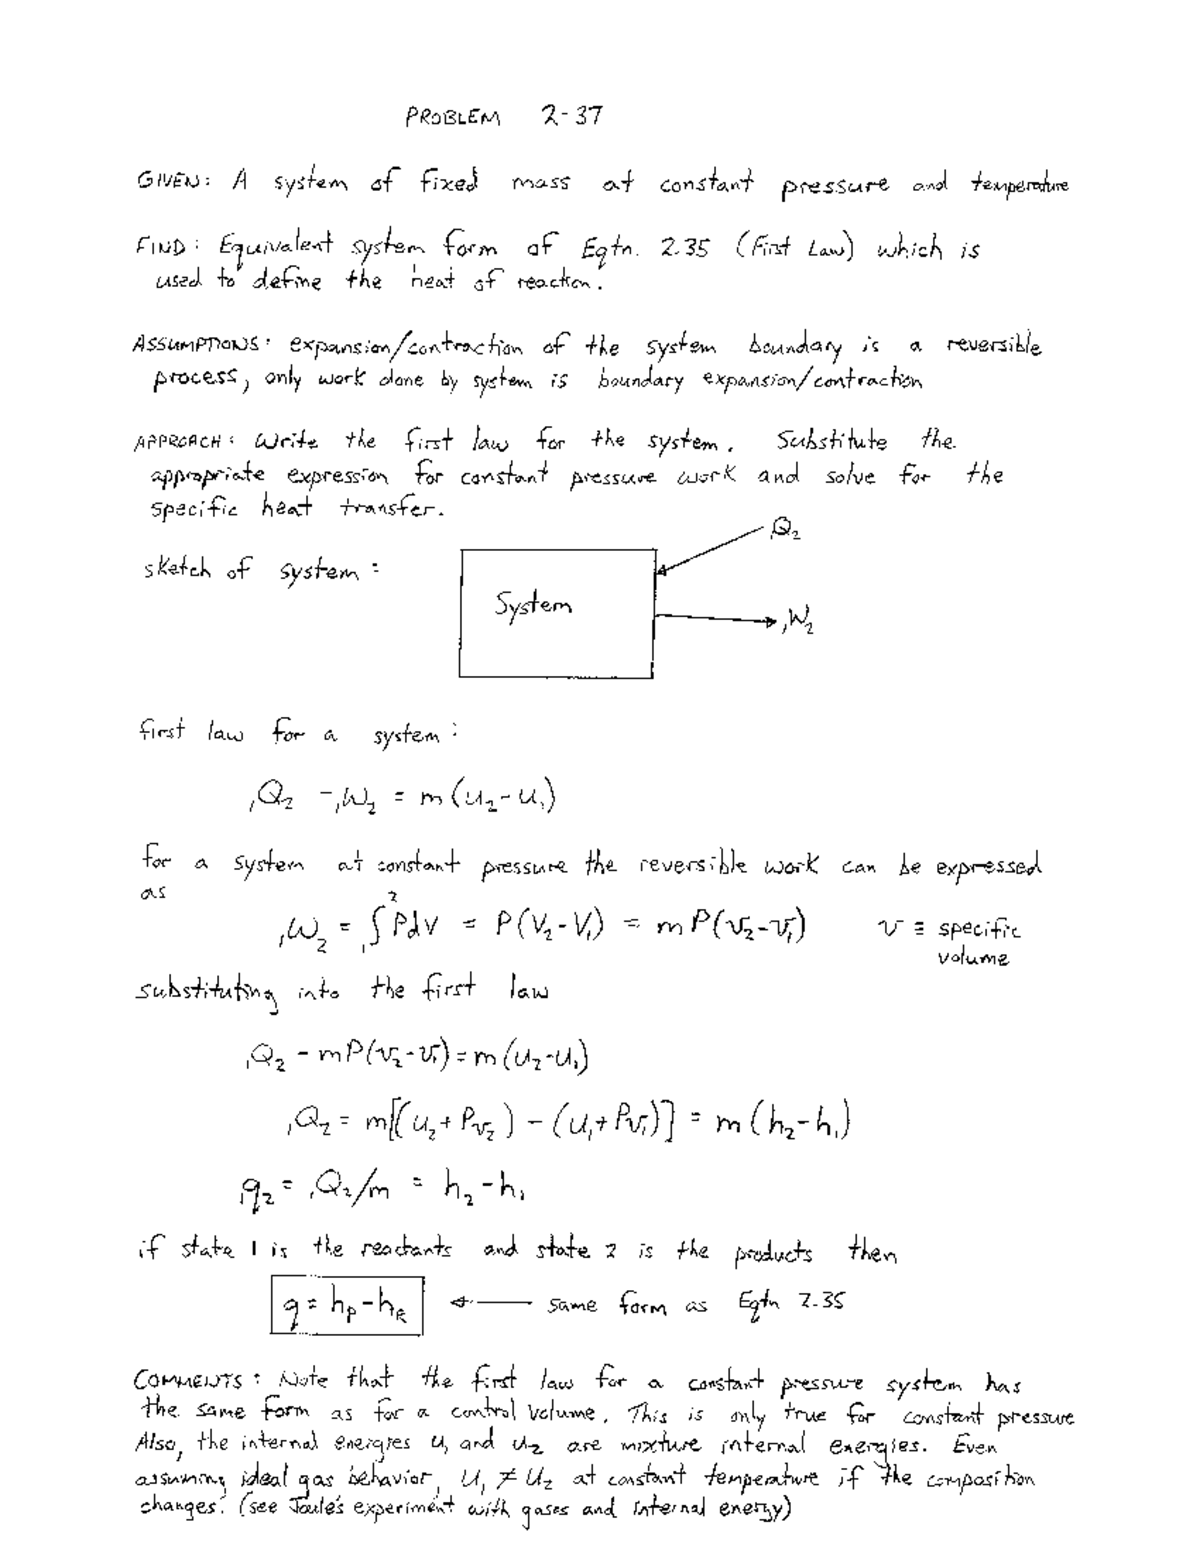 PROBLEM 2-37
GIVEN: A system of fixed mass at constant pressure and temperature
FIND: Equivalent system form of Eqtn. 2.35 (First Law) which is
used to define the heat of reaction.
ASSUMPTIONS: expansion/contraction of the system boundary is a reversible
process, only work done by system is boundary expansion/contraction
APPROACH: Write the first law for the system. Substitute the
appropriate expression for constant pressure work and solve for the
specific heat transfer.
sketch of system:
₁Q₂
System
₁W₂
first law for a system:
₁Q₂ - ₁W₂ = m(u₂-u₁)
for a system at constant pressure the reversible work can be expressed
as
₁W₂ = ∫₁² PdV = P(V₂-V₁) = mP(v₂-v₁) v ≡ specific
volume
substituting into the first law
₁Q₂ - mP(v₂-v₁) = m(u₂-u₁)
₁Q₂ = m[(u₂+Pv₂) - (u₁+Pv₁)] = m(h₂-h₁)
₁q₂ = ₁Q₂/m = h₂-h₁
if state 1 is the reactants and state 2 is the products then
q = h_P - h_R ← same form as Eqtn 2.35
COMMENTS: Note that the first law for a constant pressure system has
the same form as for a control volume. This is only true for constant pressure
Also, the internal energies u₁ and u₂ are mixture internal energies. Even
assuming ideal gas behavior, u₁ ≠ u₂ at constant temperature if the composition
changes. (see Joule's experiment with gases and internal energy)